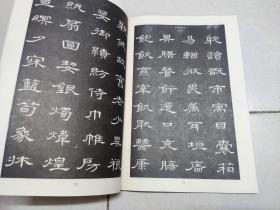 耽讀翫市寓目囊箱
易輶攸畏屬耳垣牆
具膳餐飯適口充腸
飽飫烹宰飢厭糟糠
戚故舊老少異糧
妾御績紡侍巾帷房
紈扇圓絜銀燭煒煌
晝眠夕寐藍筍象牀